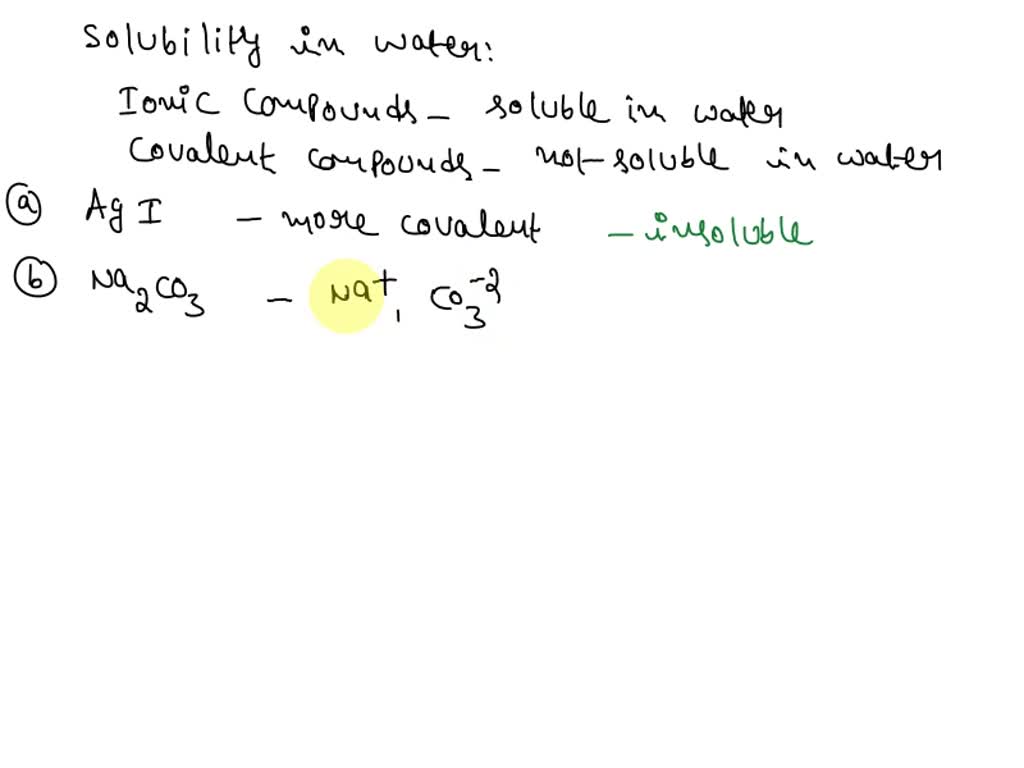 Solubility in water:
Ionic Compounds - soluble in water
Covalent compounds - not-soluble in water
(a) AgI - more covalent - insoluble
(b) Na₂CO₃ - Na⁺, CO₃⁻²